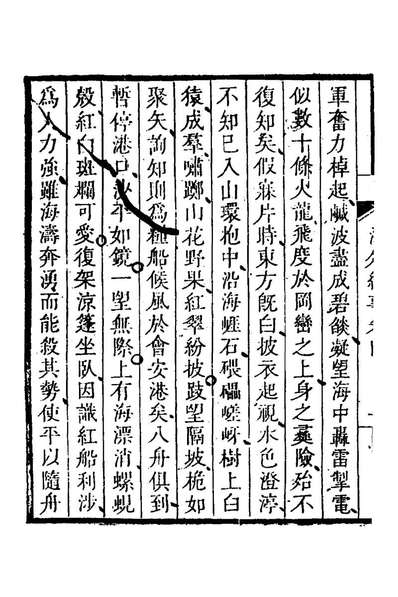 軍奮力棹起鹹波盡成碧燄凝望海中轟雷掣電
似數十條火龍飛度於岡巒之上身之彛險殆不
復知矣假寐片時東方旣白披衣起視水色澄渟
不知已入山環抱中沿海崕石磥礧嵯岈樹上白
猿成羣嘯躑山花野果紅翠紛披跂望隔坡桅如
聚矢詢知則爲種船候風於會安港矣八舟俱到
暫停港口沙平如鏡一望無際上有海漂消螺蜆
殼紅白斑斕可愛復架涼蓬坐臥因識紅船利涉
爲人力強雖海濤奔湧而能殺其勢使平以隨舟